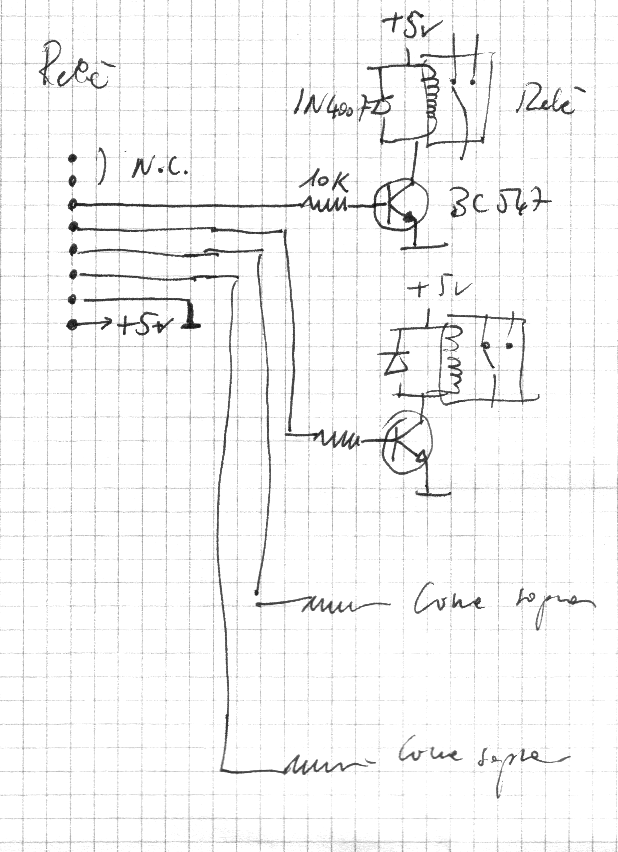 +5v
Relè
1N4007
Relè
) N.C.
10K
BC547
+5v
+5v
Come sopra
Come sopra